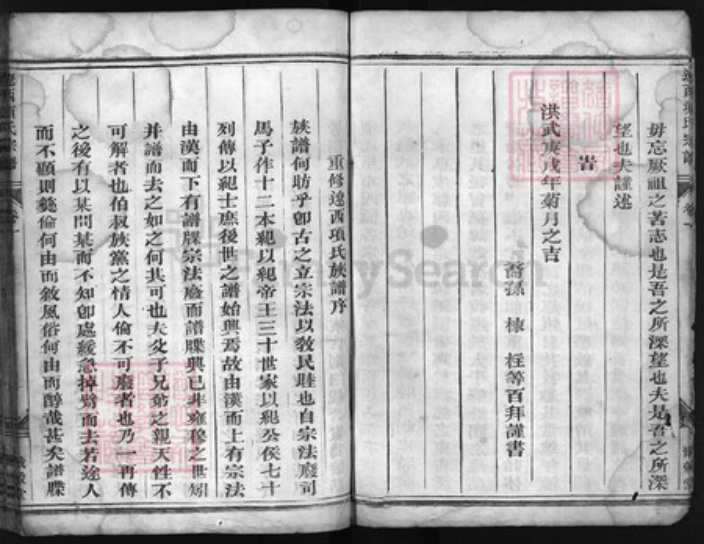 毋忘厥祖之苦志也是吾之所深望也夫是吾之所深
望也夫謹述
告
洪武庚戌年菊月之吉
裔孫 棟 桎等百拜謹書
重修遼西項氏族譜序
族譜何昉乎卽古之立宗法以敎民睦也自宗法廢司
馬子作十二本紀以紀帝王三十世家以紀公侯七十
列傳以紀士庶後世之譜始興焉故由漢而上有宗法
由漢而下有譜牒宗法廢而譜牒興已非雍穆之世矧
并譜而去之如之何其可也夫父子兄弟之親天性不
可解者也伯叔族黨之情人倫不可廢者也乃一再傳
之後有以某問某而不知卽處緩急掉臂而去若途人
而不顧則彝倫何由而敘風俗何由而醇哉甚矣譜牒
遼西項氏宗譜
卷一
FamilySearch